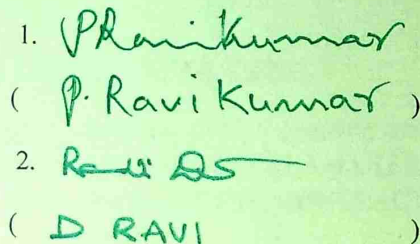 1. PRavikumar
( P. Ravi Kumar )
2. Ravi D
( D RAVI )